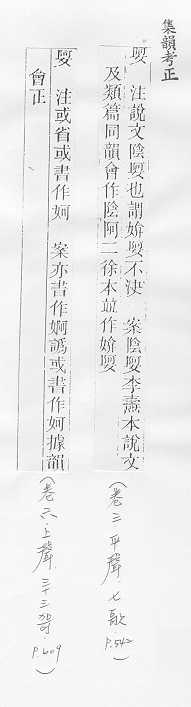 集韻考正
娿 注說文陰娿也謂媕娿不決 案陰娿李燾本說文
及類篇同韻會作陰阿二徐本竝作媕娿
(卷三.平聲.七歌 P.542)
娿 注或省或書作妸 案亦書作婀譌或書作妸據韻
會正
(卷六.上聲.三十三哿. P.609)